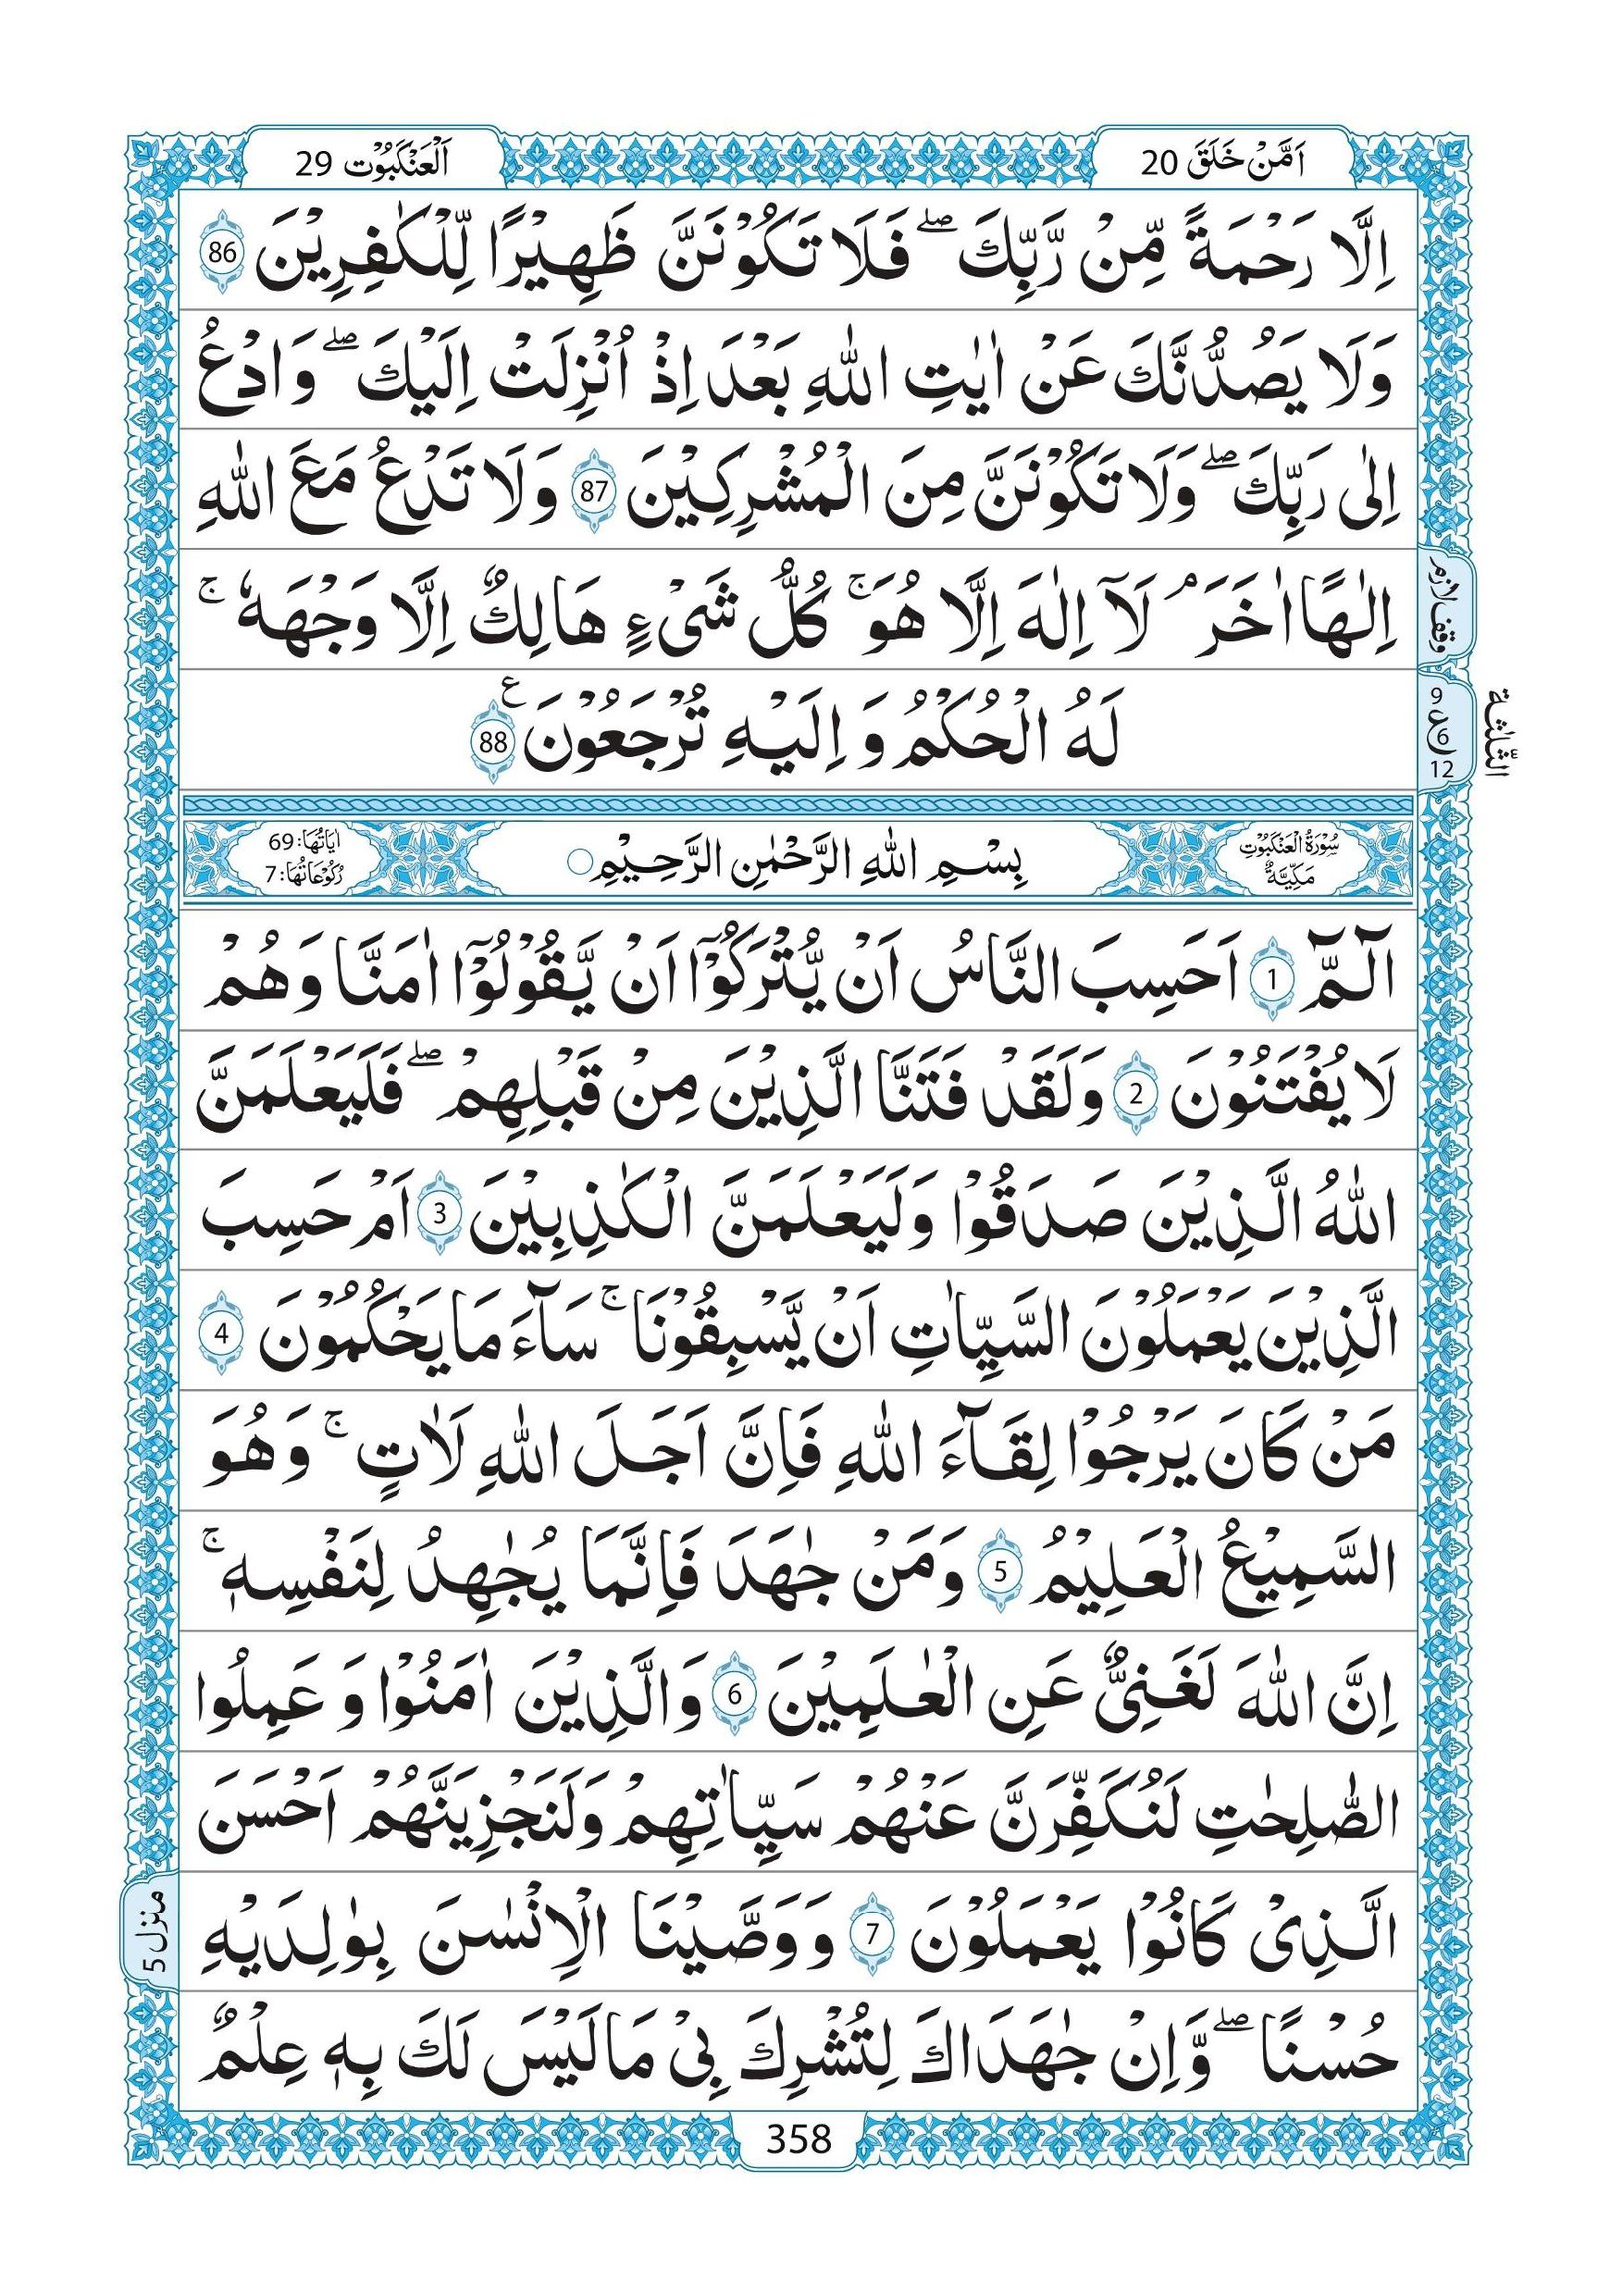 اَمَّنْ خَلَقَ 20
اَلْعَنْكَبُوْت 29
اِلَّا رَحْمَةً مِّنْ رَّبِّكَ ۖ فَلَا تَكُوْنَنَّ ظَهِيْرًا لِّلْكٰفِرِيْنَ 86
وَلَا يَصُدُّنَّكَ عَنْ اٰيٰتِ اللّٰهِ بَعْدَ اِذْ اُنْزِلَتْ اِلَيْكَ ۖ وَادْعُ
اِلٰى رَبِّكَ ۖ وَلَا تَكُوْنَنَّ مِنَ الْمُشْرِكِيْنَ 87 وَلَا تَدْعُ مَعَ اللّٰهِ
اِلٰهًا اٰخَرَ ۘ لَآ اِلٰهَ اِلَّا هُوَ ۚ كُلُّ شَىْءٍ هَالِكٌ اِلَّا وَجْهَهٗ ۚ
وقف لازم
لَهُ الْحُكْمُ وَ اِلَيْهِ تُرْجَعُوْنَ ع 88
9
ع 6
12
الثلٰثة
سُوْرَةُ الْعَنْكَبُوْتِ
مَكِّيَّةٌ
بِسْمِ اللّٰهِ الرَّحْمٰنِ الرَّحِيْمِ
اٰيَاتُهَا: 69
رُكُوْعَاتُهَا: 7
الٓمّٓ 1 اَحَسِبَ النَّاسُ اَنْ يُّتْرَكُوْٓا اَنْ يَّقُوْلُوْٓا اٰمَنَّا وَهُمْ
لَا يُفْتَنُوْنَ 2 وَلَقَدْ فَتَنَّا الَّذِيْنَ مِنْ قَبْلِهِمْ ۖ فَلَيَعْلَمَنَّ
اللّٰهُ الَّذِيْنَ صَدَقُوْا وَلَيَعْلَمَنَّ الْكٰذِبِيْنَ 3 اَمْ حَسِبَ
الَّذِيْنَ يَعْمَلُوْنَ السَّيِّاٰتِ اَنْ يَّسْبِقُوْنَا ۚ سَآءَ مَا يَحْكُمُوْنَ 4
مَنْ كَانَ يَرْجُوْا لِقَآءَ اللّٰهِ فَاِنَّ اَجَلَ اللّٰهِ لَاٰتٍ ۚ وَهُوَ
السَّمِيْعُ الْعَلِيْمُ 5 وَمَنْ جٰهَدَ فَاِنَّمَا يُجٰهِدُ لِنَفْسِهٖ ۚ
اِنَّ اللّٰهَ لَغَنِىٌّ عَنِ الْعٰلَمِيْنَ 6 وَالَّذِيْنَ اٰمَنُوْا وَ عَمِلُوا
الصّٰلِحٰتِ لَنُكَفِّرَنَّ عَنْهُمْ سَيِّاٰتِهِمْ وَلَنَجْزِيَنَّهُمْ اَحْسَنَ
الَّذِىْ كَانُوْا يَعْمَلُوْنَ 7 وَوَصَّيْنَا الْاِنْسٰنَ بِوٰلِدَيْهِ
منزل 5
حُسْنًا ۖ وَّاِنْ جٰهَدَاكَ لِتُشْرِكَ بِىْ مَا لَيْسَ لَكَ بِهٖ عِلْمٌ
358